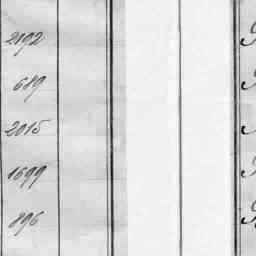 2192
689
2015
1699
896